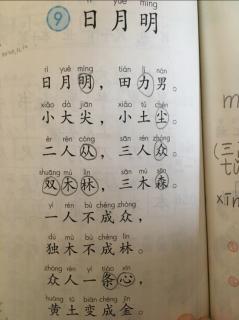 ⑨ 日月明
rì yuè míng
rì yuè míng tián lì nán
日月明，田力男。
xiǎo dà jiān xiǎo tǔ chén
小大尖，小土尘。
èr rén cóng sān rén zhòng
二人从，三人众。
shuāng mù lín sān mù sēn
双木林，三木森。
yì rén bù chéng zhòng
一人不成众，
dú mù bù chéng lín
独木不成林。
zhòng rén yì tiáo xīn
众人一条心，
huáng tǔ biàn chéng jīn
黄土变成金。